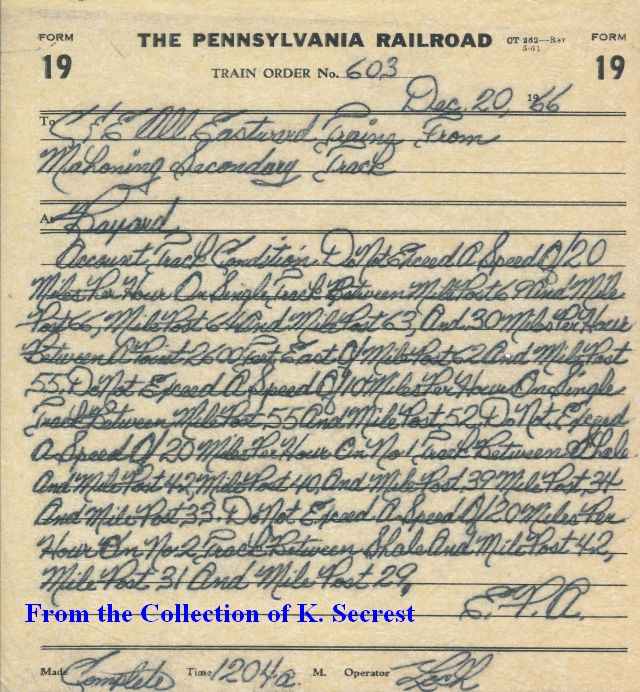 FORM 19
THE PENNSYLVANIA RAILROAD
CT 262—Rev 5-61
FORM 19
TRAIN ORDER No. 603
Dec. 20, 1966
To C&E All Eastward Trains From
Mahoning Secondary Track
At Bayard,
Account Track Condition Do Not Exceed A Speed Of 20
Miles Per Hour On Single Track Between Mile Post 69 And Mile
Post 66, Mile Post 64 And Mile Post 63, And 30 Miles Per Hour
Between A Point 2600 Feet East Of Mile Post 62 And Mile Post
55, Do Not Exceed A Speed Of 10 Miles Per Hour On Single
Track Between Mile Post 55 And Mile Post 52, Do Not Exceed
A Speed Of 20 Miles Per Hour On No 1 Track Between Shale
And Mile Post 42, Mile Post 40, And Mile Post 39 Mile Post 34
And Mile Post 33. Do Not Exceed A Speed Of 20 Miles Per
Hour On No. 2 Track Between Shale And Mile Post 42,
Mile Post 31 And Mile Post 29,
E.P.A.
From the Collection of K. Secrest
Made Complete Time 1204 a. M. Operator